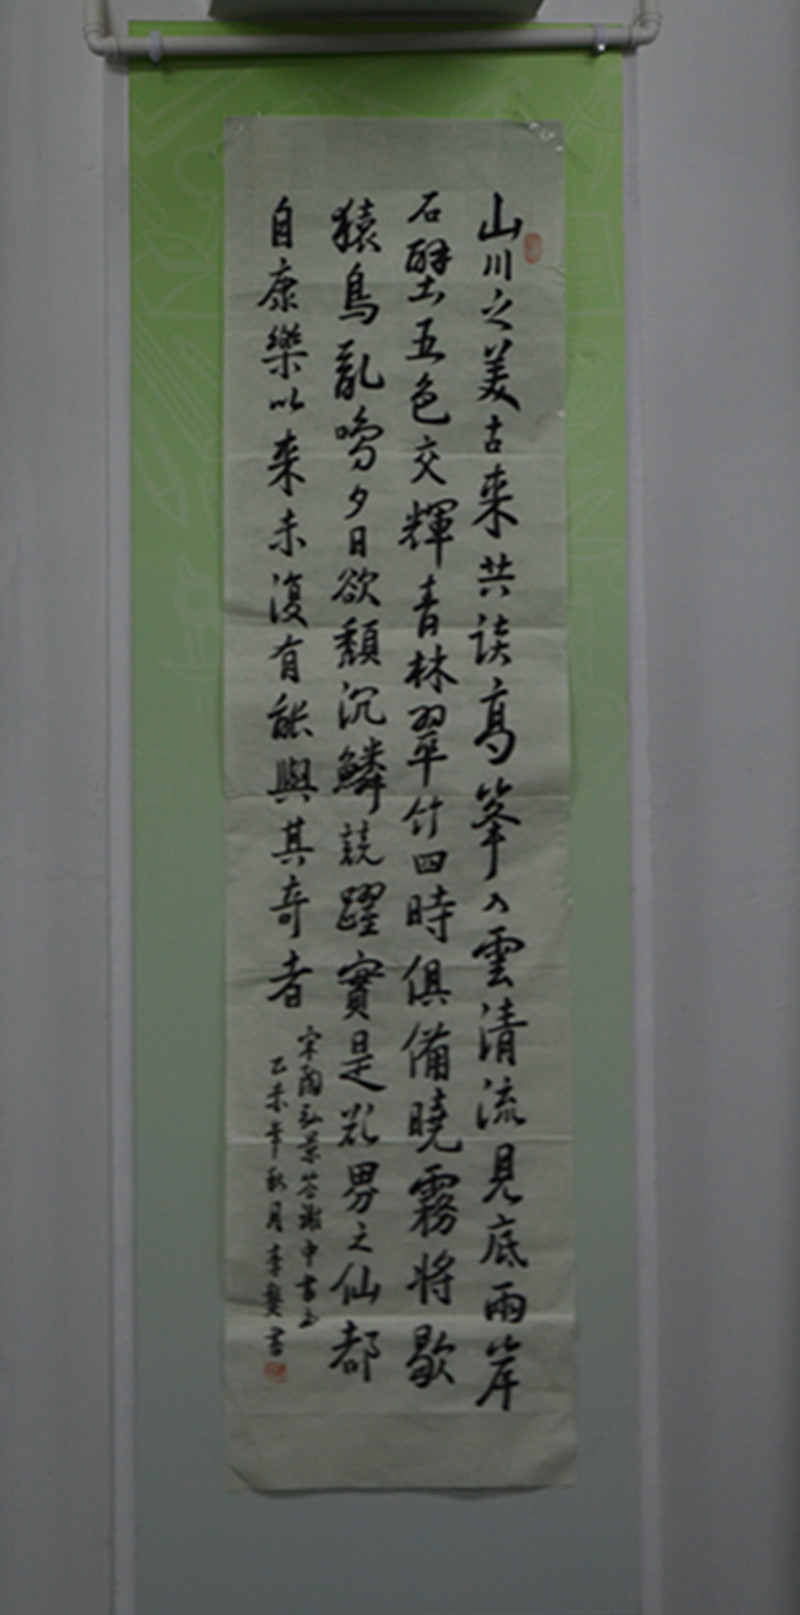 山川之美古来共談高峯入雲清流見底兩岸
石壁五色交輝青林翠竹四時俱備曉霧將歇
猿鳥亂鳴夕日欲頹沉鱗競躍實是欲界之仙都
自康樂以来未復有能與其奇者
宋陶弘景答謝中書書
乙未年秋月李龑書